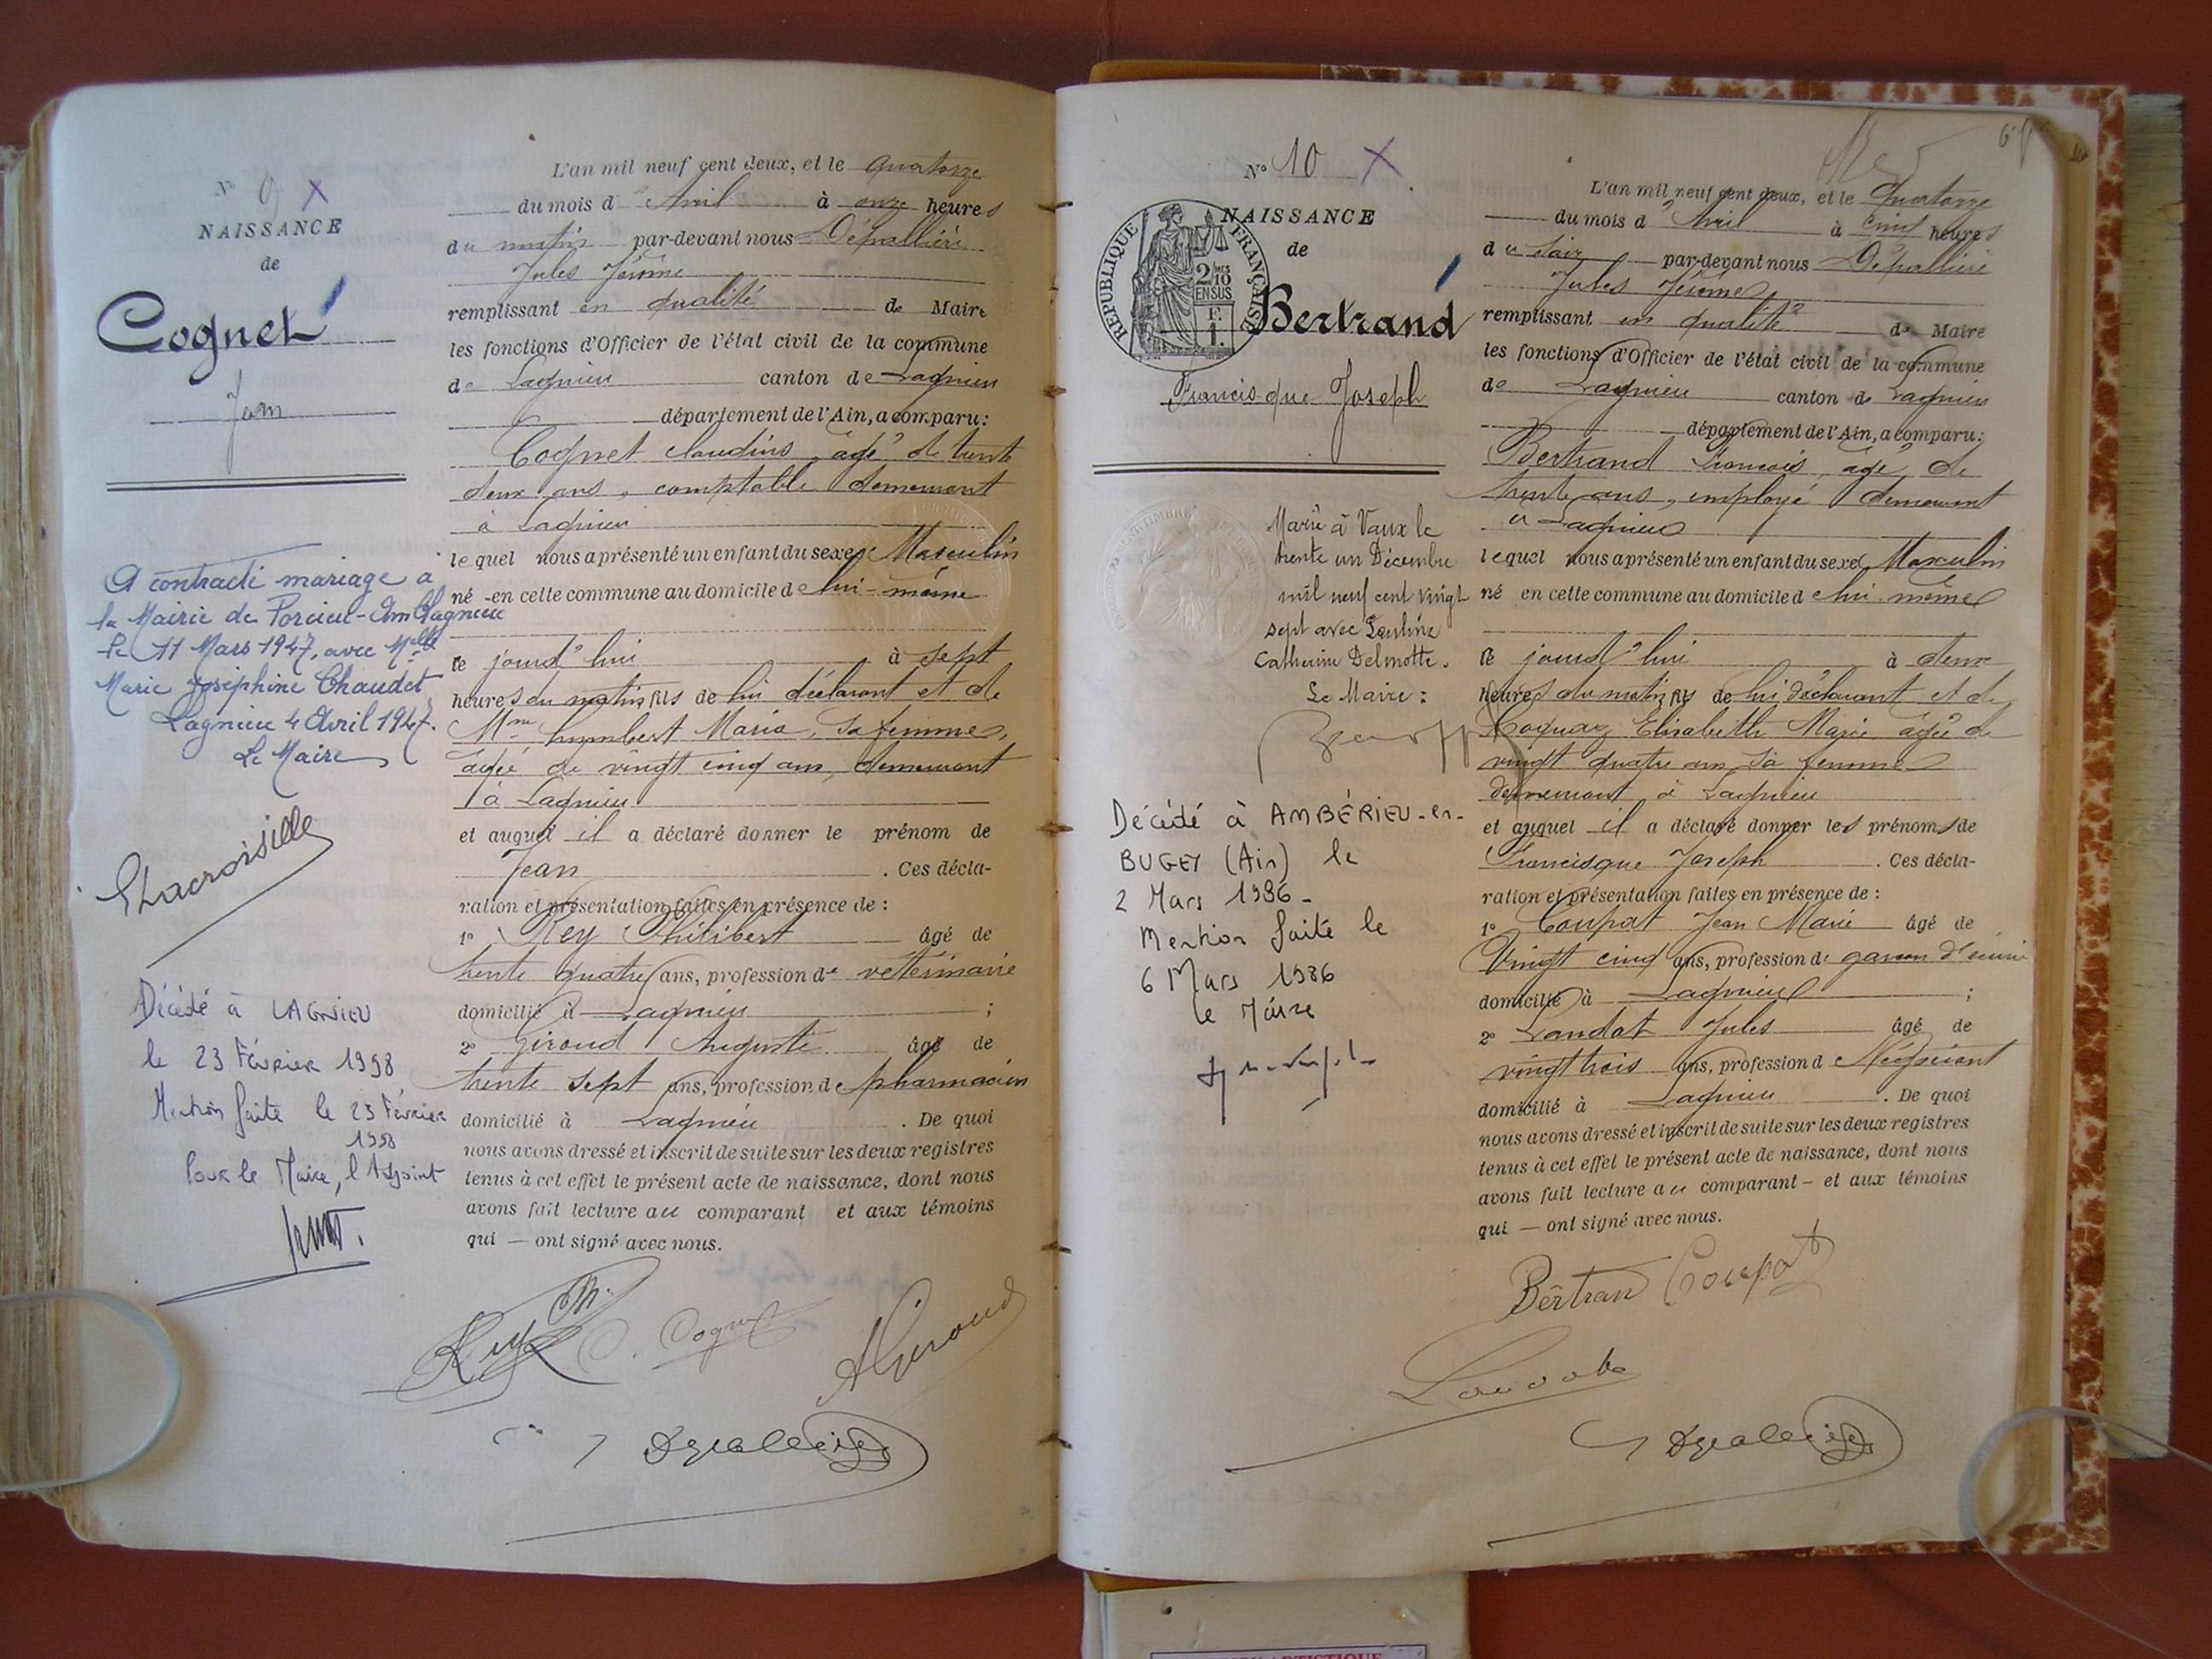 N° 9 X
NAISSANCE
de
Cognet
Jean
A contracté mariage à
la Mairie de Porcieu-Amblagnieu
le 11 Mars 1947, avec Melle
Marie Joséphine Chaudet
Lagnieu 4 Avril 1947.
Le Maire
Lacroisille
Décédé à LAGNIEU
le 23 Février 1998
Mention faite le 23 Février
1998
Pour le Maire, l'Adjoint
L'an mil neuf cent deux, et le quatorze
du mois d'Avril à onze heures
du matin par-devant nous Dépallière
Jules Jérôme
remplissant en qualité de Maire
les fonctions d'Officier de l'état civil de la commune
de Lagnieu canton de Lagnieu
département de l'Ain, a comparu:
Cognet Claudius, âgé de trente
deux ans, comptable demeurant
à Lagnieu
lequel nous a présenté un enfant du sexe Masculin
né en cette commune au domicile de lui-même
ce jourd'hui à sept
heures du matin fils de lui déclarant et de
Mme humbert Maria, sa femme,
agée de vingt cinq ans, demeurant
à Lagnieu
et auquel il a déclaré donner le prénom de
Jean . Ces décla-
ration et présentation faites en présence de :
1° Rey Philibert âgé de
trente quatre ans, profession de vétérinaire
domicilié à Lagnieu ;
2° Giroud Auguste âgé de
trente sept ans, profession de pharmacien
domicilié à Lagnieu . De quoi
nous avons dressé et inscrit de suite sur les deux registres
tenus à cet effet le présent acte de naissance, dont nous
avons fait lecture au comparant et aux témoins
qui — ont signé avec nous.
Rey Ph.
C. Cognet
A Giroud
Depallière
N° 10 X
NAISSANCE
de
RÉPUBLIQUE FRANÇAISE
2/10
EN SUS
Bertrand
Francisque Joseph
Marié à Vaux le
trente un Décembre
mil neuf cent vingt
sept avec Pauline
Catherine Delmotte.
Le Maire :
Décédé à AMBÉRIEU-en-
BUGEY (Ain) le
2 Mars 1986 -
Mention faite le
6 Mars 1986
le Maire
L'an mil neuf cent deux, et le Quatorze
du mois d'Avril à cinq heures
du soir par-devant nous Dépallière
Jules Jérôme
remplissant en qualité de Maire
les fonctions d'Officier de l'état civil de la commune
de Lagnieu canton de Lagnieu
département de l'Ain, a comparu:
Bertrand François, âgé de
trente ans, employé demeurant
à Lagnieu
lequel nous a présenté un enfant du sexe Masculin
né en cette commune au domicile de lui-même
ce jourd'hui à deux
heures du matin fils de lui déclarant et de
Coquaz Elisabeth Marie âgée de
vingt quatre ans sa femme
demeurant à Lagnieu
et auquel il a déclaré donner les prénoms de
Francisque Joseph . Ces décla-
ration et présentation faites en présence de :
1° Coupat Jean Marie âgé de
Vingt cinq ans, profession de garçon d'écurie
domicilié à Lagnieu ;
2° Landot Jules âgé de
vingt trois ans, profession de Négociant
domicilié à Lagnieu . De quoi
nous avons dressé et inscrit de suite sur les deux registres
tenus à cet effet le présent acte de naissance, dont nous
avons fait lecture au comparant — et aux témoins
qui — ont signé avec nous.
Bertran Coupat
Depallière